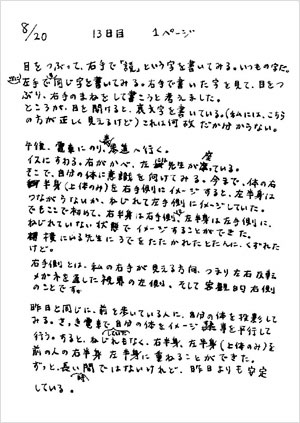 8/20　13日目　1ページ
目をつぶって、右手で「鏡」という字を書いてみる。いつもの字だ。
左手で同じ字を書いてみる。右手で書いた字を見て、目をつ
ぶり、右手のまねとして書こうと考えました。
ところが、目を開けると、裏文字を書いている。(私には、こちら
の方が正しく見えるけど)これは何故だか分からない。
午後、電車にのり、へ行く。
イスにすわる。右がかべ、左に先生が座っている。
そこで、自分の体に意識を向けてみる。今まで、体の右
半身(上体のみ)を右手側にイメージすると、左半身は
つながらないか、ねじれて左手側にイメージしていた。
でもここで初めて、右半身は右手側、左半身は左手側に、
ねじれていない状態でイメージすることができた。
横にいる先生にうでをたたかれたとたんに、くずれた
けど。
右手側とは、私の右手が見える方向、つまり左右反転
メガネを通した視界の左側、そして客観的右側
のことです。
昨日と同じに、前を歩いている人に、自分の体を投影して
みる。さっき電車で自分の体をイメージしたを平行して
行う。すると、ねじれもなく、右半身、左半身(上体のみ)を
前の人の右半身 左半身に重ねることができた。
ずっと長い間ではないけれど、昨日よりも安定
している。